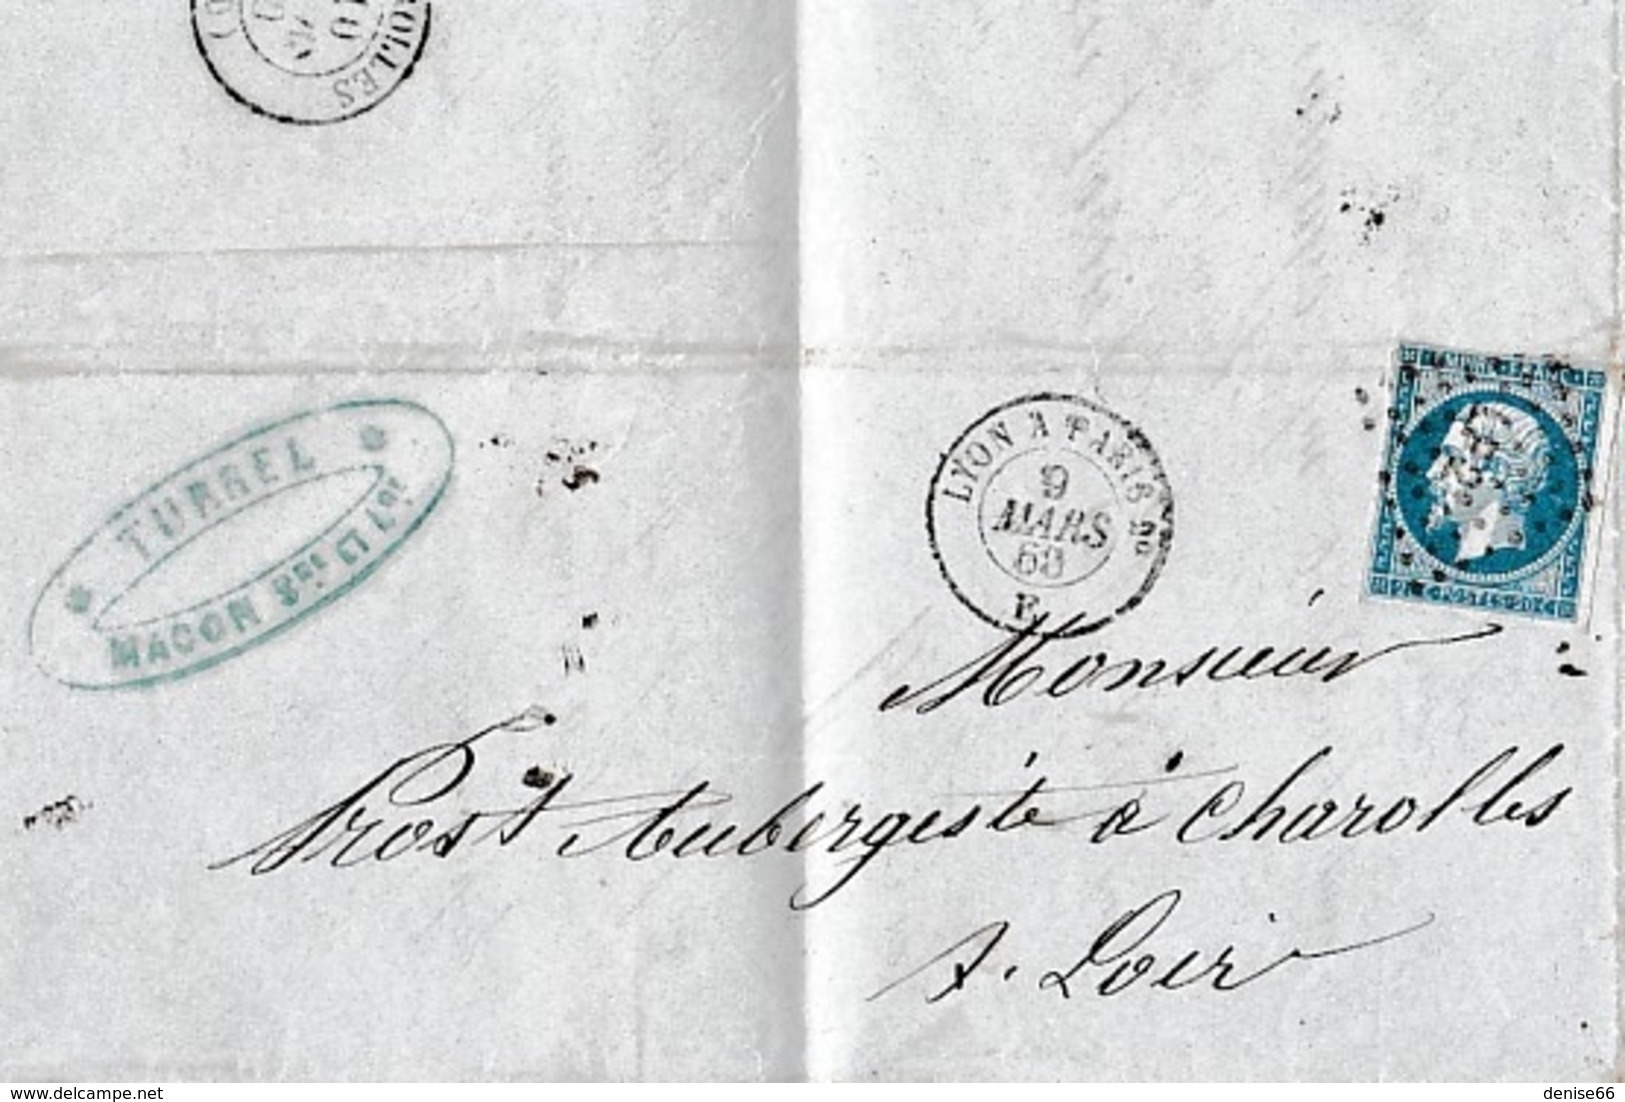 TURREL
MACON Sne ET Lre
LYON A PARIS 2o
9
MARS
63
E
POSTES
Monsieur
Prost Aubergiste à Charolles
S. Loir
www.delcampe.net
denise66